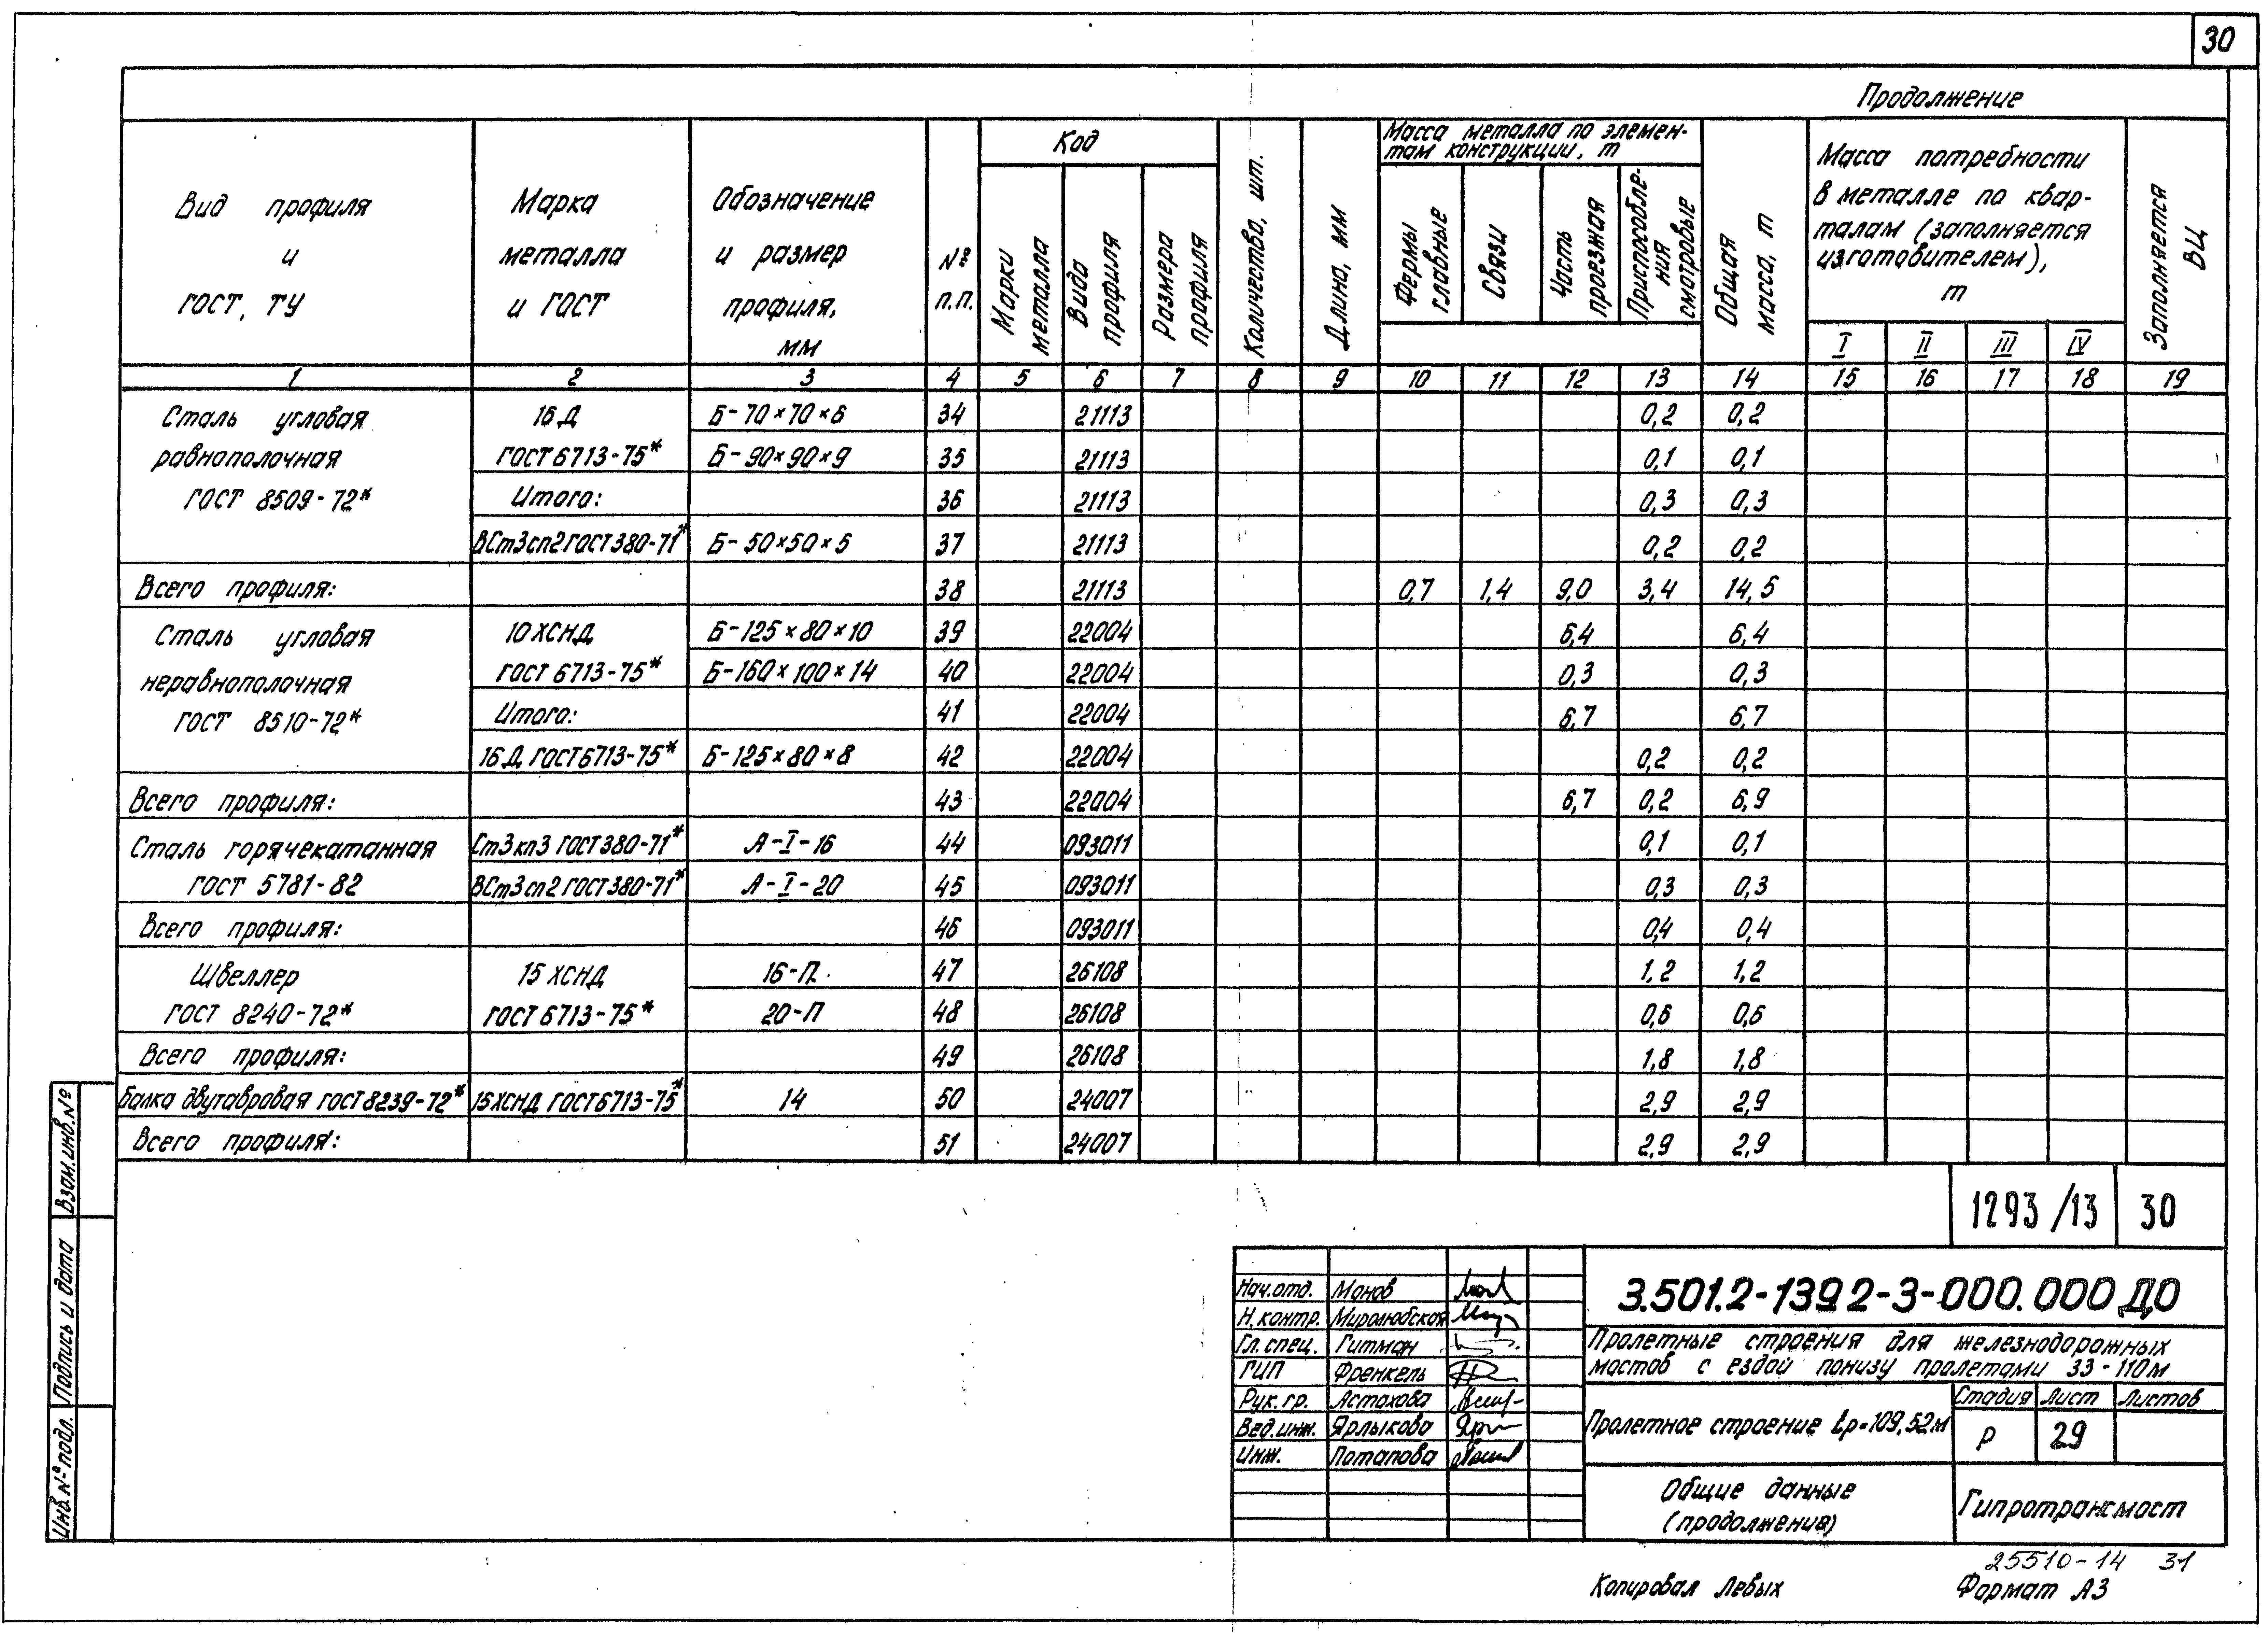 30
Продолжение
Вид профиля и ГОСТ, ТУ
Марка металла и ГОСТ
Обозначение и размер профиля, мм
№ п.п.
Код
Марки металла
Вида профиля
Размера профиля
Количество, шт.
Длина, мм
Масса металла по элемен-
там конструкции, т
Фермы главные
Связи
Часть проезжая
Приспособле-
ния смотровые
Общая масса, т
Масса потребности
в металле по квар-
талам (заполняется
изготовителем),
т
I II III IV
Заполняется ВЦ
1 2 3 4 5 6 7 8 9 10 11 12 13 14 15 16 17 18 19
Сталь угловая 16Д Б-70×70×6 34 21113 0,2 0,2
равнополочная ГОСТ 6713-75* Б-90×90×9 35 21113 0,1 0,1
ГОСТ 8509-72* Итого: 36 21113 0,3 0,3
ВСт3сп2 ГОСТ 380-71* Б-50×50×5 37 21113 0,2 0,2
Всего профиля: 38 21113 0,7 1,4 9,0 3,4 14,5
Сталь угловая 10ХСНД Б-125×80×10 39 22004 6,4 6,4
неравнополочная ГОСТ 6713-75* Б-160×100×14 40 22004 0,3 0,3
ГОСТ 8510-72* Итого: 41 22004 6,7 6,7
16Д ГОСТ 6713-75* Б-125×80×8 42 22004 0,2 0,2
Всего профиля: 43 22004 6,7 0,2 6,9
Сталь горячекатанная Ст3кп3 ГОСТ 380-71* А-I-16 44 093011 0,1 0,1
ГОСТ 5781-82 ВСт3сп2 ГОСТ 380-71* А-I-20 45 093011 0,3 0,3
Всего профиля: 46 093011 0,4 0,4
Швеллер 15ХСНД 16-П 47 26108 1,2 1,2
ГОСТ 8240-72* ГОСТ 6713-75* 20-П 48 26108 0,6 0,6
Всего профиля: 49 26108 1,8 1,8
Балка двутавровая ГОСТ 8239-72* 15ХСНД ГОСТ 6713-75* 14 50 24007 2,9 2,9
Всего профиля: 51 24007 2,9 2,9
1293/13 30
Взам.инв.№
Подпись и дата
Инв.№ подл.
Нач.отд. Монов
Н.контр. Миролюбская
Гл.спец. Гитман
ГИП Френкель
Рук.гр. Астахова
Вед.инж. Ярлыкова
Инж. Потапова
3.501.2-139.2-3-000.000 ДО
Пролетные строения для железнодорожных
мостов с ездой понизу пролетами 33-110м
Пролетное строение Lр=109,52м
Стадия Лист Листов
Р 29
Общие данные
(продолжение)
Гипротрансмост
25510-14 31
Копировал Левых Формат А3